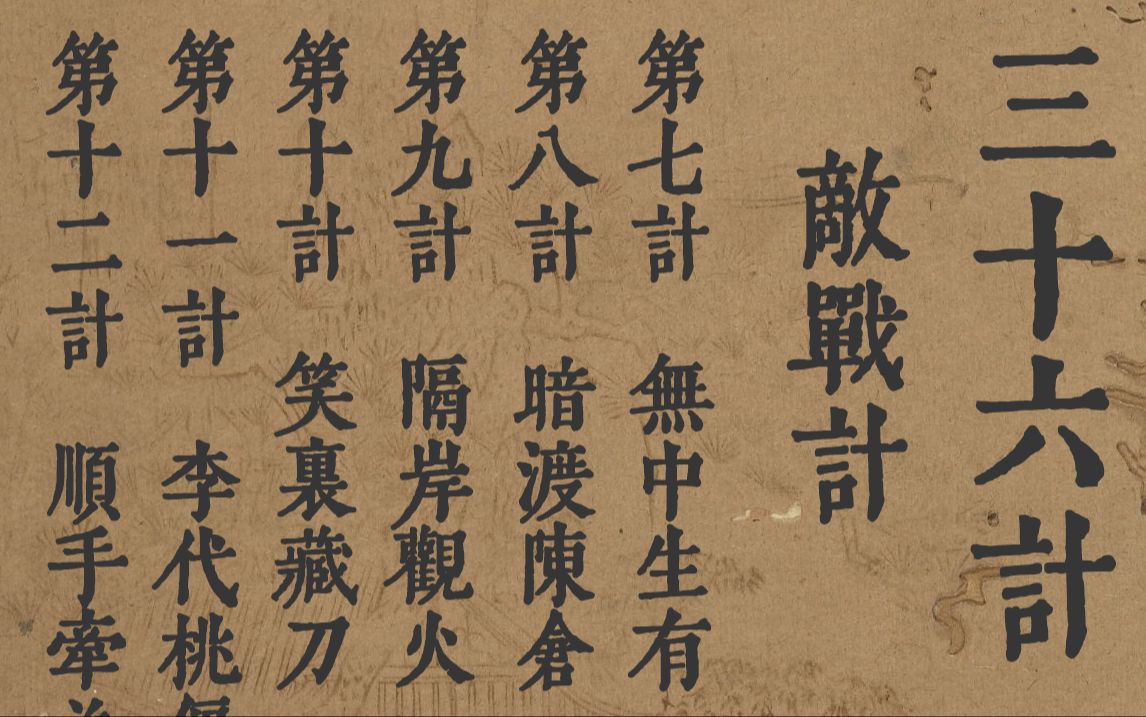 三十六計
敵戰計
第七計 無中生有
第八計 暗渡陳倉
第九計 隔岸觀火
第十計 笑裏藏刀
第十一計 李代桃
第十二計 順手牽